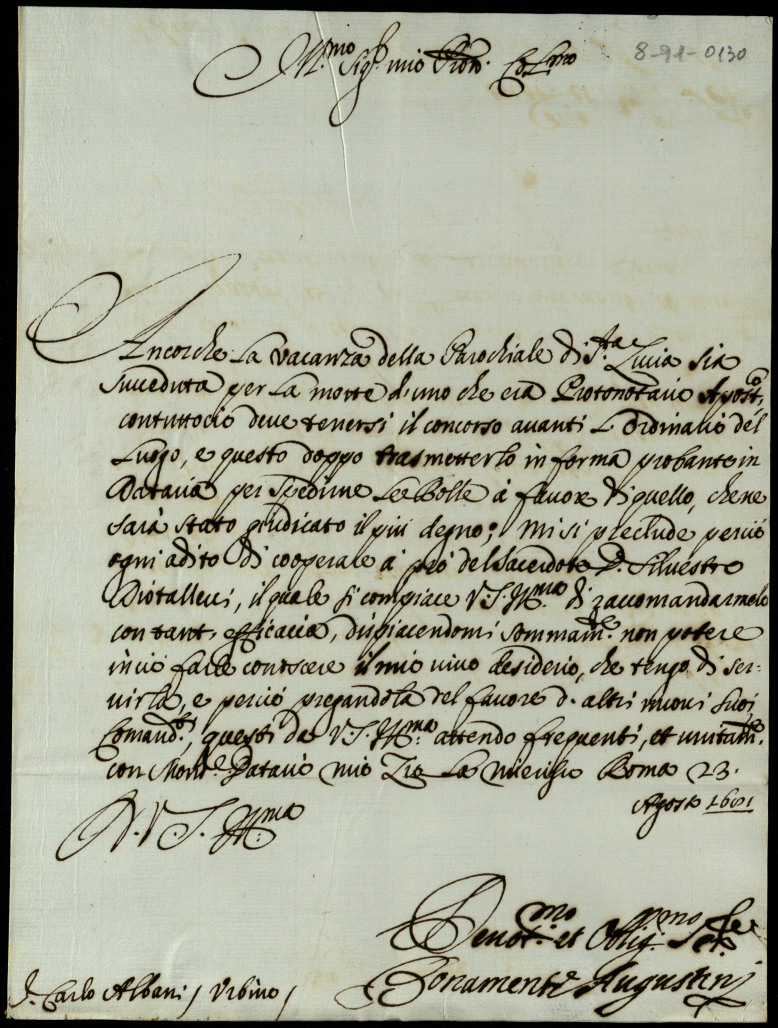 8-91-0130
Ill.mo Sig.r mio Pron. Col.mo
Ancorche la vacanza della Parochiale di S.ta Lucia sia
succeduta per la morte d'uno che era Protonotario Apost.co,
contuttociò deve tenersi il concorso avanti l'Ordinario del
Luogo, e questo doppo trasmetterlo in forma probante in
Dataria per spedirne le Bolle à favore di quello, che ne
sarà stato giudicato il più degno; Mi si preclude perciò
ogni adito di cooperare à prò del Sacerdote D. Silvestro
Diotallevi, il quale si compiace V.S. Ill.ma di raccomandarmelo
con tant' efficacia, dispiacendomi sommam.te non potere
in ciò farle conoscere il mio vivo desiderio, che tengo di ser-
virla, e perciò pregandola del favore d'altri nuovi suoi
Comand.ti, questi da V.S. Ill.ma attendo frequenti, et unitam.te
con Mons.re Datario mio Zio la riverisco Roma 23.
Agosto 1691
D. V. S. Ill.ma
Devot.mo et Oblig.mo Ser.re
Bonamente Augustini
S. Carlo Albani / Urbino /